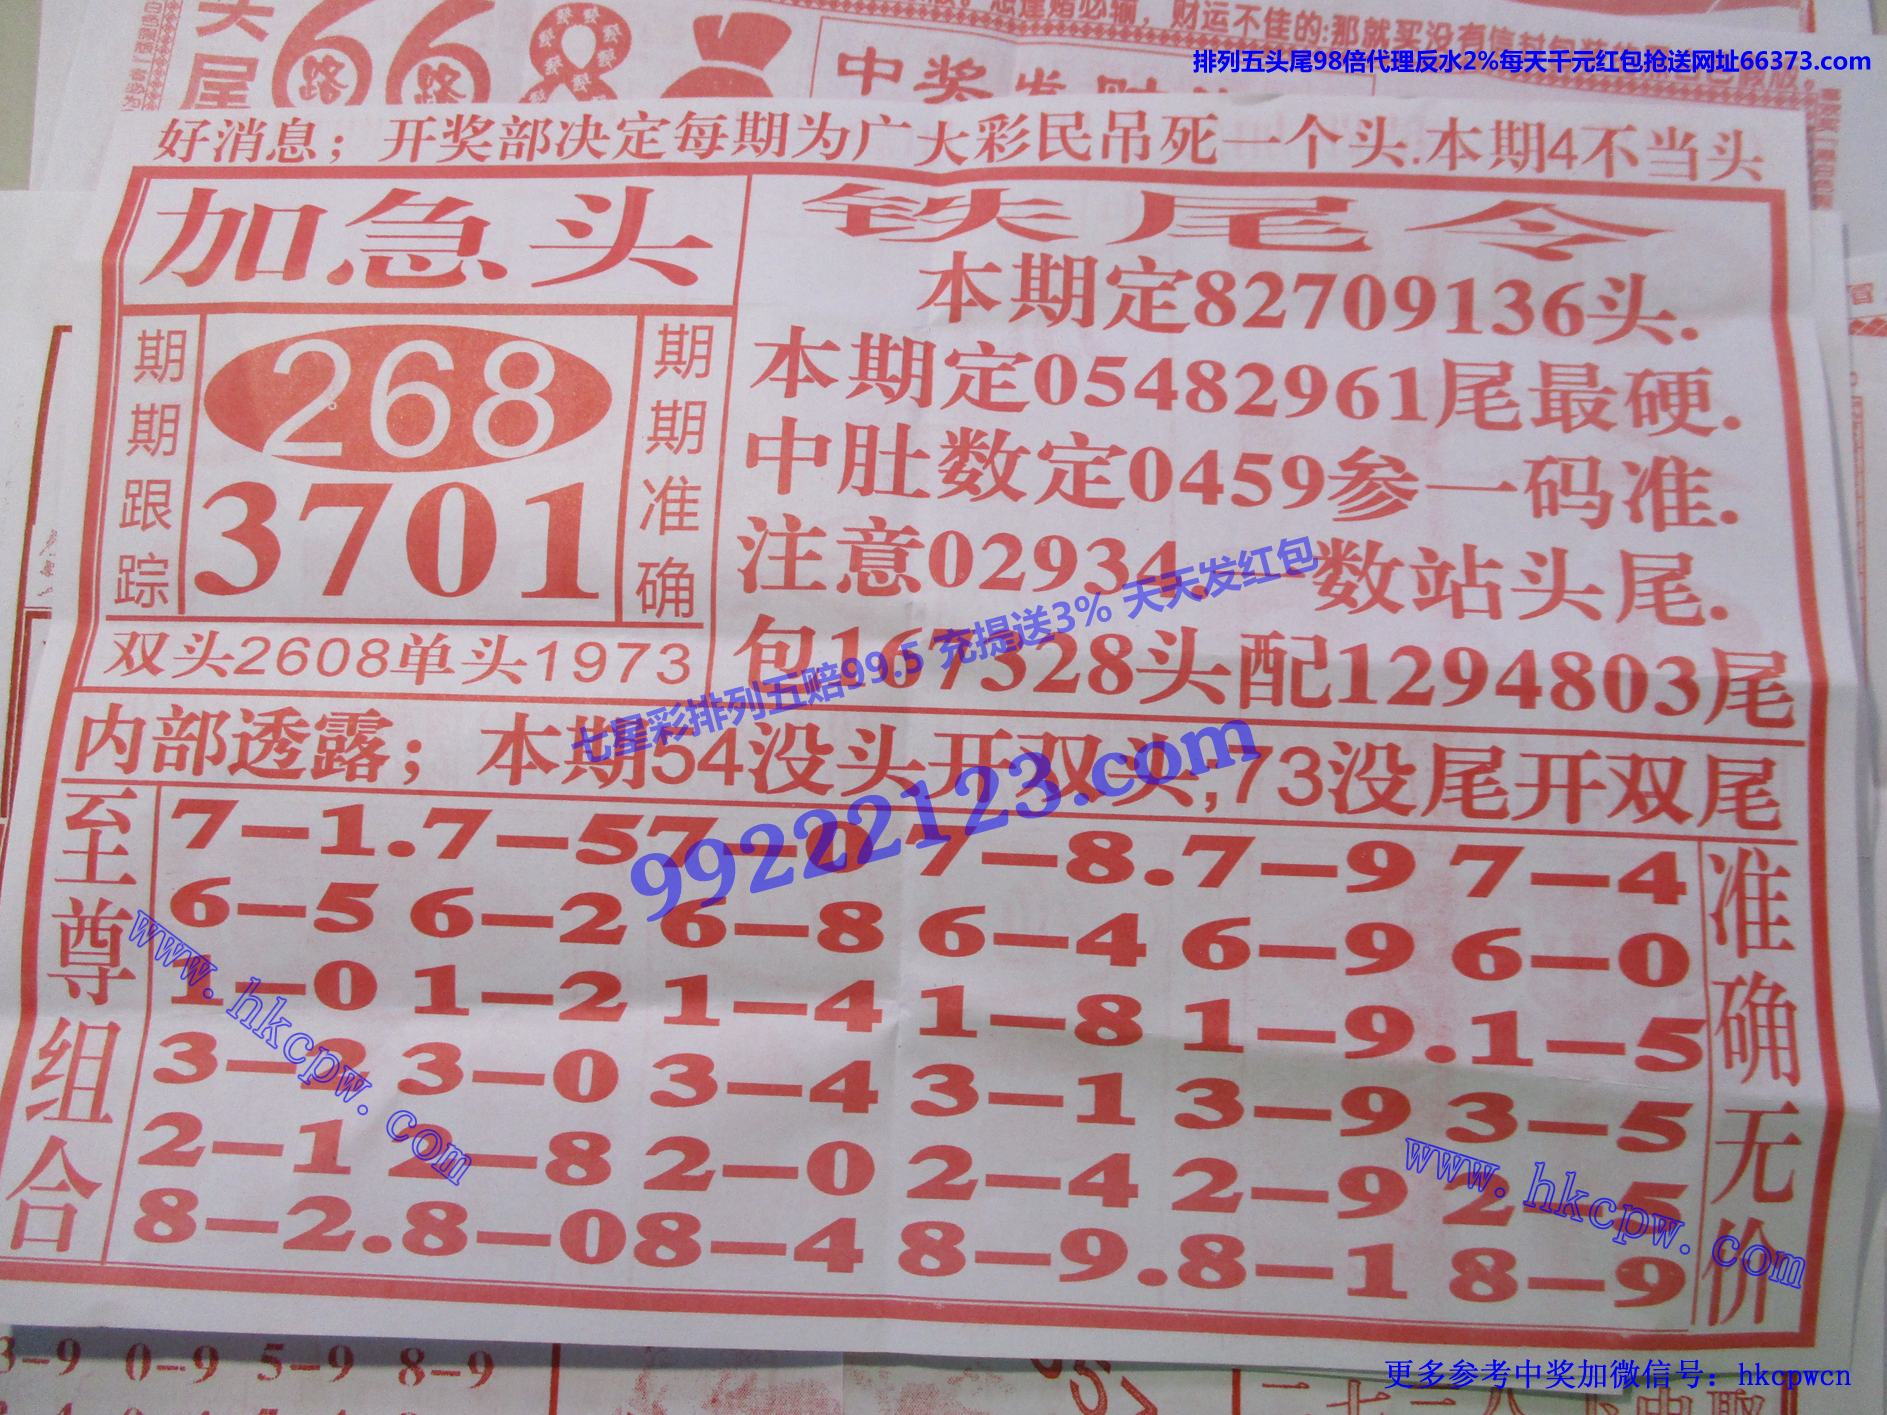 头尾
66
路 路
中奖发财
财运不佳的:那就买没有信封包装的
排列五头尾98倍代理反水2%每天千元红包抢送网址66373.com
好消息；开奖部决定每期为广大彩民吊死一个头.本期4不当头
加急头
期期跟踪
268
3701
期期准确
双头2608单头1973
铁尾令
本期定82709136头.
本期定05482961尾最硬.
中肚数定0459参一码准.
注意02934.一数站头尾.
包167328头配1294803尾
七星彩排列五赔99.5 充提送3% 天天发红包
99222123.com
内部透露；本期54没头开双头;73没尾开双尾
至尊组合
7—1.7—5 7—0 7—8.7—9 7—4
6—5 6—2 6—8 6—4 6—9 6—0
1—0 1—2 1—4 1—8 1—9.1—5
3—2 3—0 3—4 3—1 3—9 3—5
2—1 2—8 2—0 2—4 2—9 2—5
8—2.8—0 8—4 8—9.8—1 8—9
准确无价
www.hkcpw.com
www.hkcpw.com
3-9 0-9 5-9 8-9
更多参考中奖加微信号：hkcpwcn